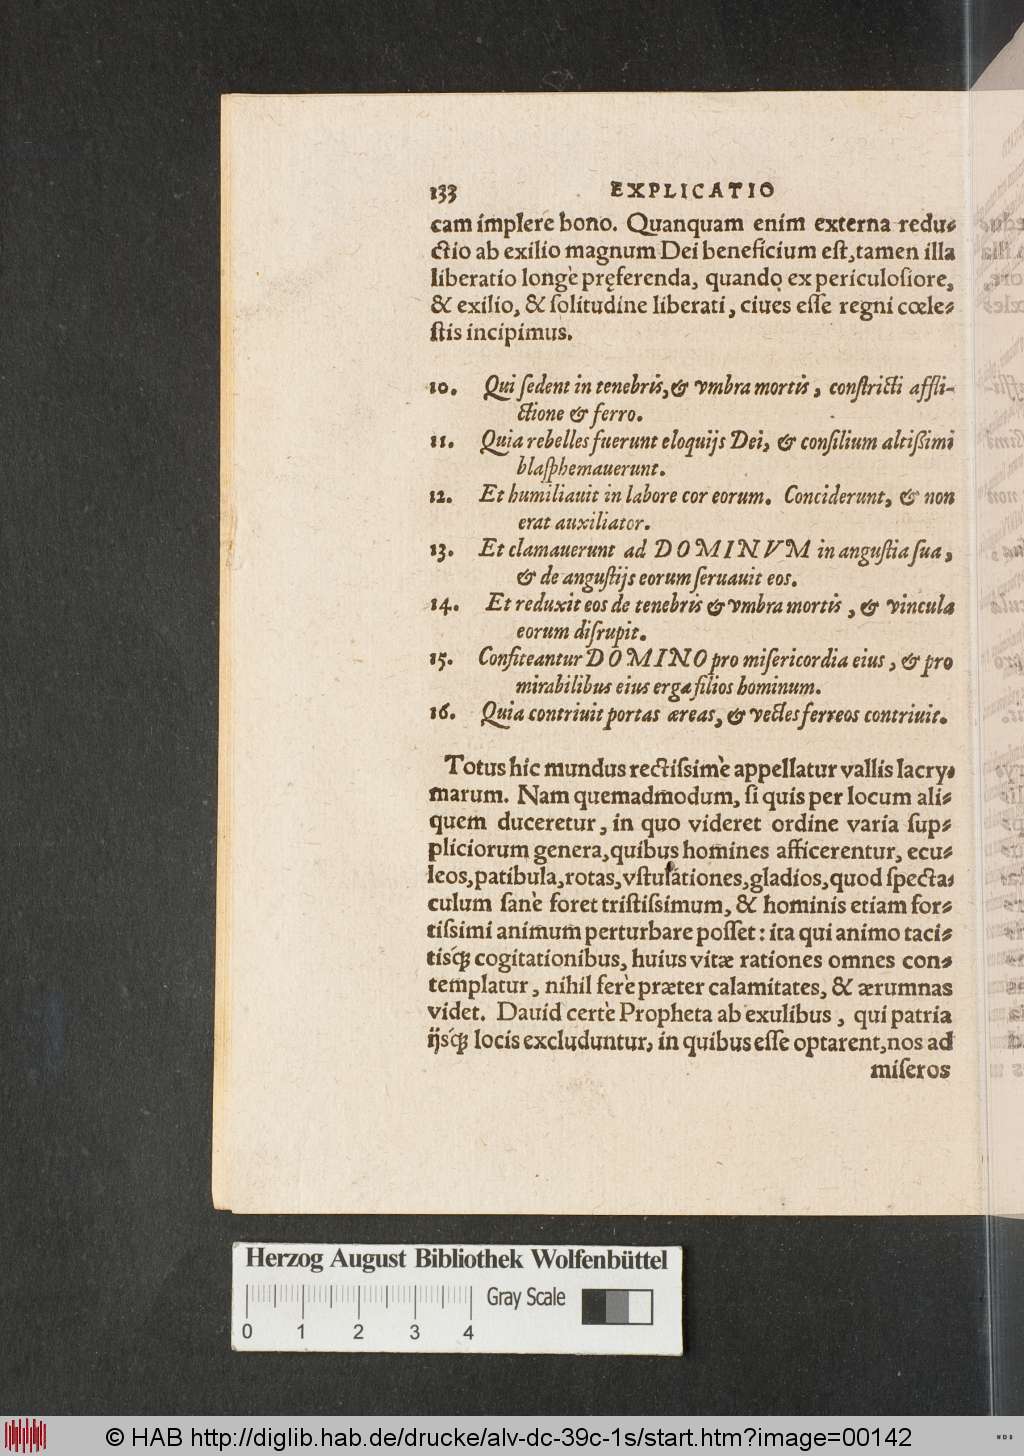 133 EXPLICATIO
cam implere bono. Quanquam enim externa redu⸗
ctio ab exilio magnum Dei beneficium est, tamen illa
liberatio longè pręferenda, quando ex periculosiore,
& exilio, & solitudine liberati, ciues esse regni cœle⸗
stis incipimus.
10. Qui sedent in tenebris, & vmbra mortis, constricti affli-
ctione & ferro.
11. Quia rebelles fuerunt eloquijs Dei, & consilium altißimi
blasphemauerunt.
12. Et humiliauit in labore cor eorum. Conciderunt, & non
erat auxiliator.
13. Et clamauerunt ad DOMINVM in angustia sua,
& de angustijs eorum seruauit eos.
14. Et reduxit eos de tenebris & vmbra mortis, & vincula
eorum disrupit.
15. Confiteantur DOMINO pro misericordia eius, & pro
mirabilibus eius erga filios hominum.
16. Quia contriuit portas æreas, & vectes ferreos contriuit.
Totus hic mundus rectissimè appellatur vallis lacry⸗
marum. Nam quemadmodum, si quis per locum ali⸗
quem duceretur, in quo videret ordine varia sup⸗
pliciorum genera, quibus homines afficerentur, ecu⸗
leos, patibula, rotas, vstulationes, gladios, quod specta⸗
culum sanè foret tristissimum, & hominis etiam for⸗
tissimi animum perturbare posset: ita qui animo taci⸗
tisq́; cogitationibus, huius vitæ rationes omnes con⸗
templatur, nihil ferè præter calamitates, & ærumnas
videt. Dauid certè Propheta ab exulibus, qui patria
ijsq́; locis excluduntur, in quibus esse optarent, nos ad
miseros
Herzog August Bibliothek Wolfenbüttel
Gray Scale
0 1 2 3 4
© HAB http://diglib.hab.de/drucke/alv-dc-39c-1s/start.htm?image=00142